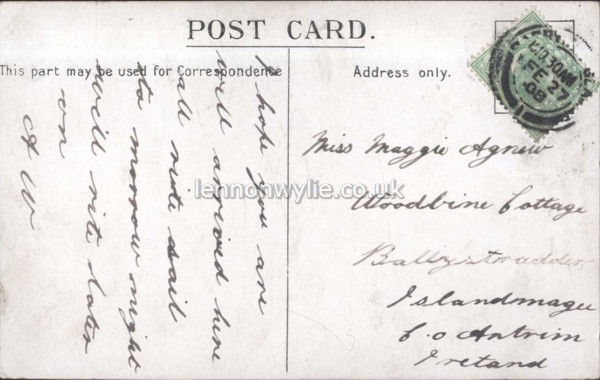 POST CARD.
This part may be used for Correspondence
Address only.
10.30AM
FE 27
08
I hope you are
well arrived here
all right sail
to morrow night
will rite later
on
A W
Miss Maggie Agnew
Woodbine Cottage
Ballystradder
Islandmagee
Co Antrim
Ireland
lennonwylie.co.uk